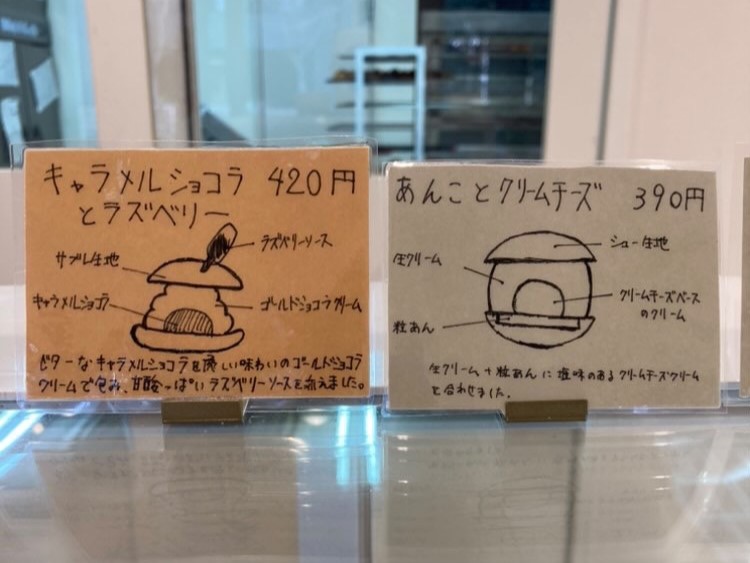 キャラメルショコラ 420円
とラズベリー
ラズベリーソース
サブレ生地
キャラメルショコラ
ゴールドショコラクリーム
ビターなキャラメルショコラを優しい味わいのゴールドショコラ
クリームで包み、甘酸っぱいラズベリーソースを添えました。
あんことクリームチーズ 390円
シュー生地
生クリーム
クリームチーズベース
のクリーム
粒あん
生クリーム+粒あんに塩味のあるクリームチーズクリーム
と合わせました。